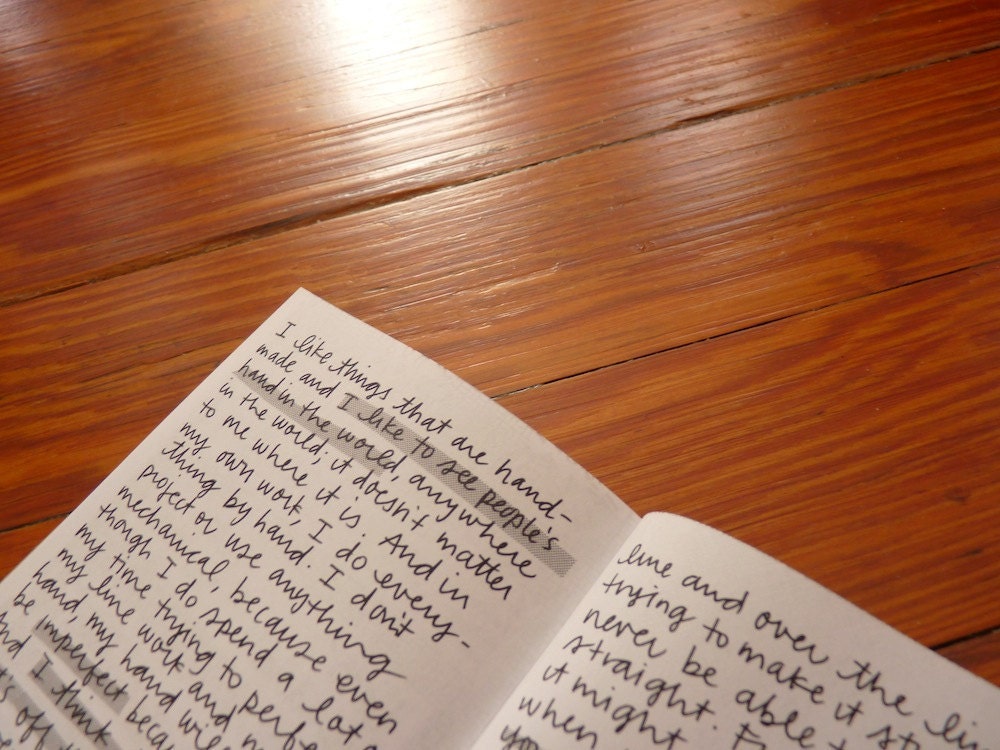 I like things that are hand-
made and I like to see people's
hand in the world, anywhere
in the world; it doesn't matter
to me where it is. And in
my own work, I do every-
thing by hand. I don't
project or use anything
mechanical, because even
though I do spend a lot
my time trying to perfe
my line work and
hand, my hand will
be imperfect
I think
line and over the li
trying to make it st
never be able t
straight.
it might
when
you